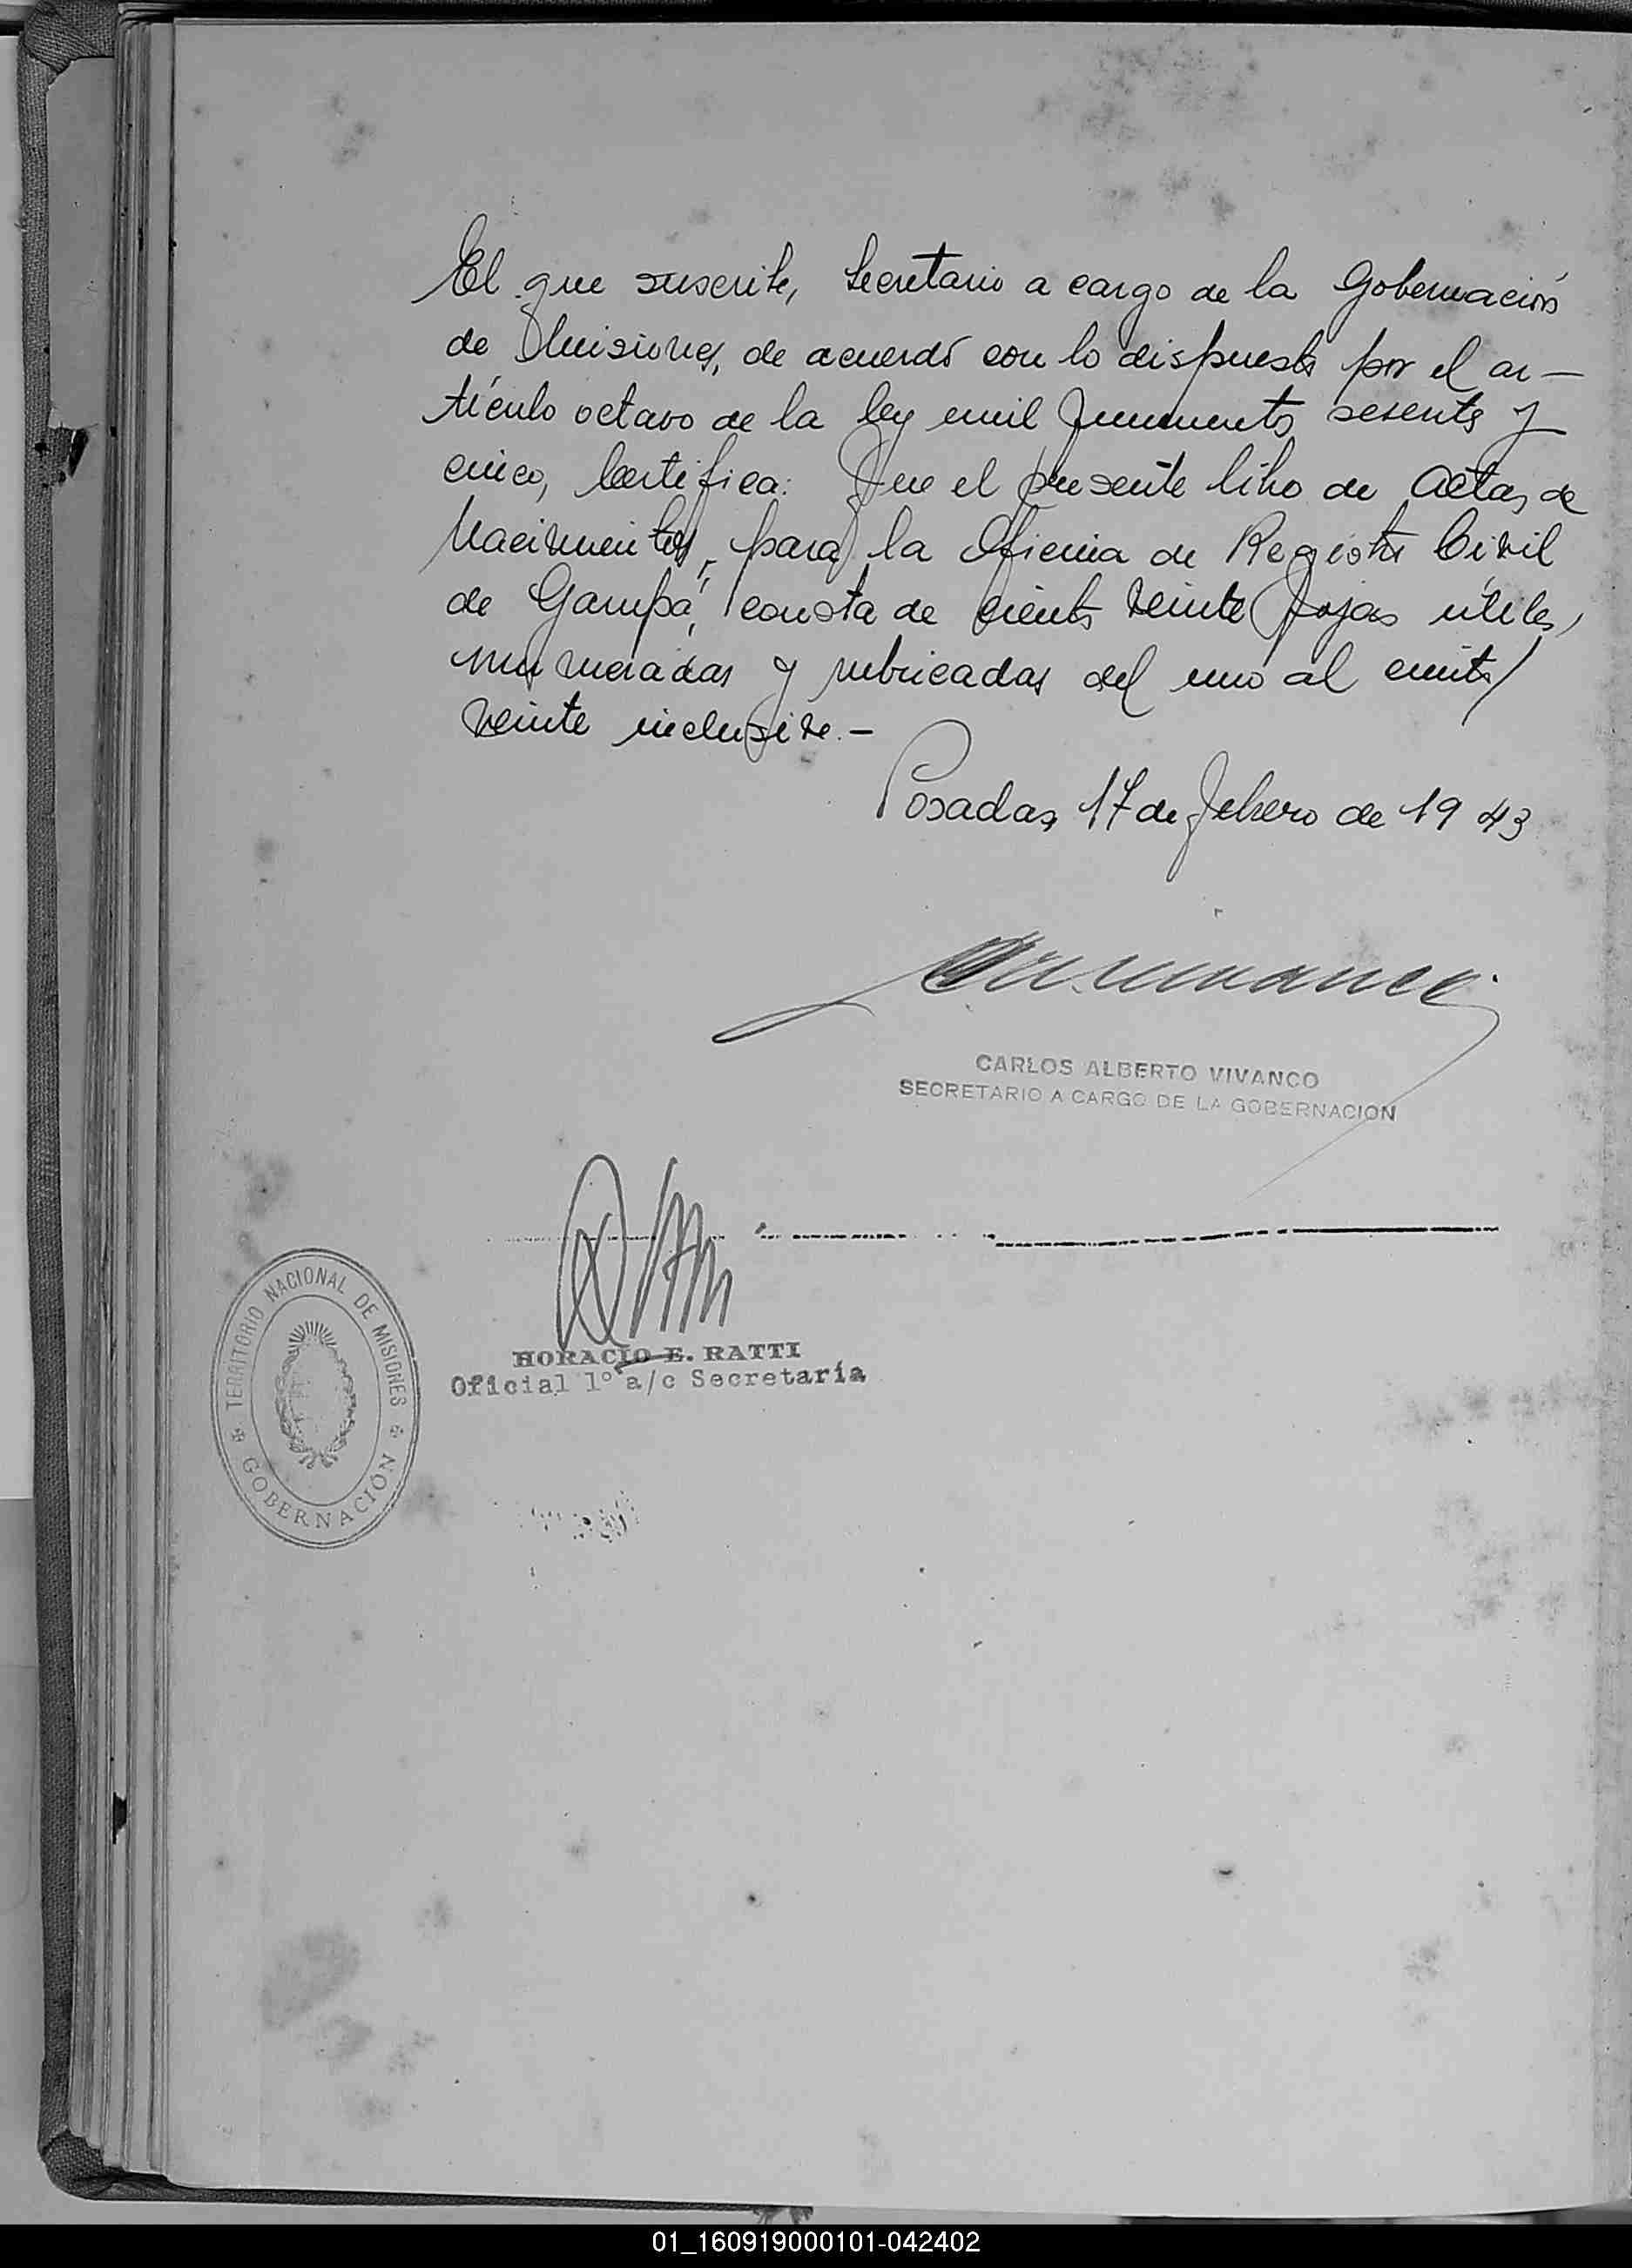 El que suscribe, Secretario a cargo de la Gobernación
de Misiones, de acuerdo con lo dispuesto por el ar-
tículo octavo de la ley mil quinientos sesenta y
cinco, Certifica: Que el presente libro de Actas de
Nacimientos, para la Oficina de Registro Civil
de Garupá, consta de ciento veinte fojas útiles,
numeradas y rubricadas del uno al ciento
veinte inclusive.-
Posadas, 17 de Febrero de 1943
CARLOS ALBERTO VIVANCO
SECRETARIO A CARGO DE LA GOBERNACION
HORACIO E. RATTI
Oficial 1º a/c Secretaría
TERRITORIO NACIONAL DE MISIONES
GOBERNACIÓN
01_160919000101-042402